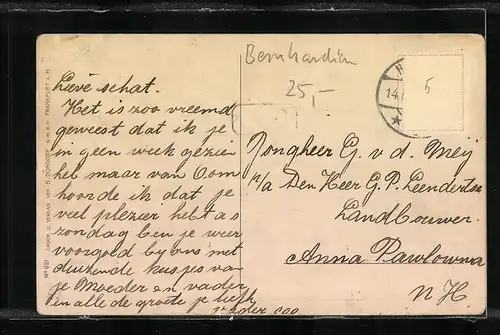 Bernhardien
25,-
5
14.
Lieve schat.
Het is zoo vreemd
geweest dat ik je
in geen week gezien
heb maar van Oom
hoorde ik dat je
veel plezier hebt as
zondag ben je weer
voorgoed bij ons met
duizende kusjes van
je Moeder en vader
en alle de groete je liefh
Jongheer G. v. d. Meij
p/a Den Heer G. P. Leendertse
Landbouwer.
Anna Pawlowna
N H.
No 629 DRUCK U. VERLAG VON B. DONDORF G.M.B.H. FRANKFURT A.M.